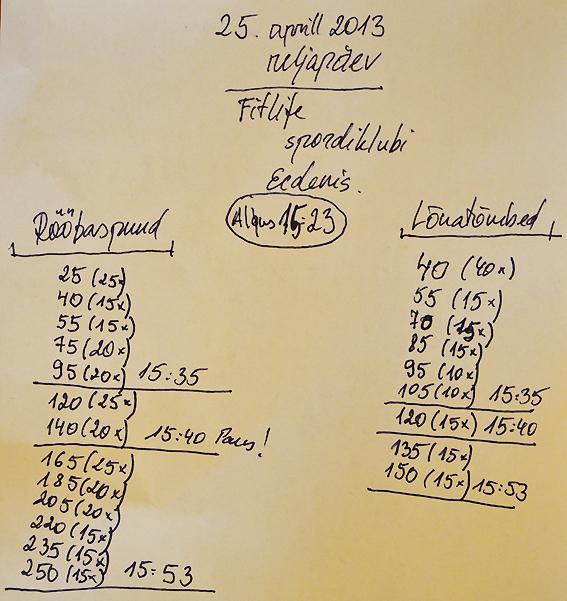 25. aprill 2013
neljapäev
Fitlife
spordiklubi
Ecdenis.
Algus 15:23
Rööbaspuud
25 (25x)
40 (15x)
55 (15x)
75 (20x)
95 (20x) 15:35
120 (25x)
140 (20x) 15:40 Paus!
165 (25x)
185 (20x)
205 (20x)
220 (15x)
235 (15x)
250 (15x) 15:53
Lõuatõmbed
40 (40x)
55 (15x)
70 (15x)
85 (15x)
95 (10x)
105 (10x) 15:35
120 (15x) 15:40
135 (15x)
150 (15x) 15:53